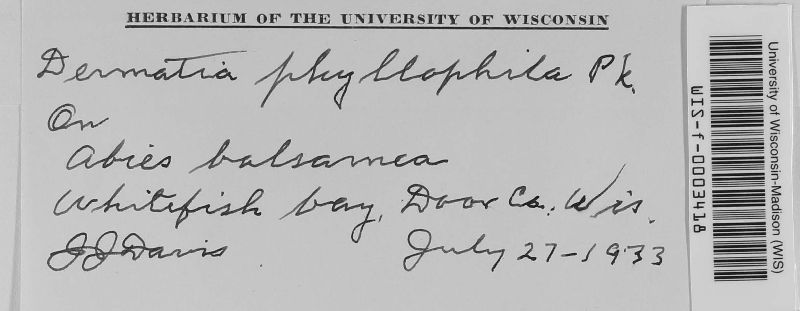 HERBARIUM OF THE UNIVERSITY OF WISCONSIN
Dermatia phyllophila Pk.
On
Abies balsamea
Whitefish bay, Door Co. Wis.
JJDavis July 27-1933
University of Wisconsin-Madison (WIS)
WIS-f-0003418